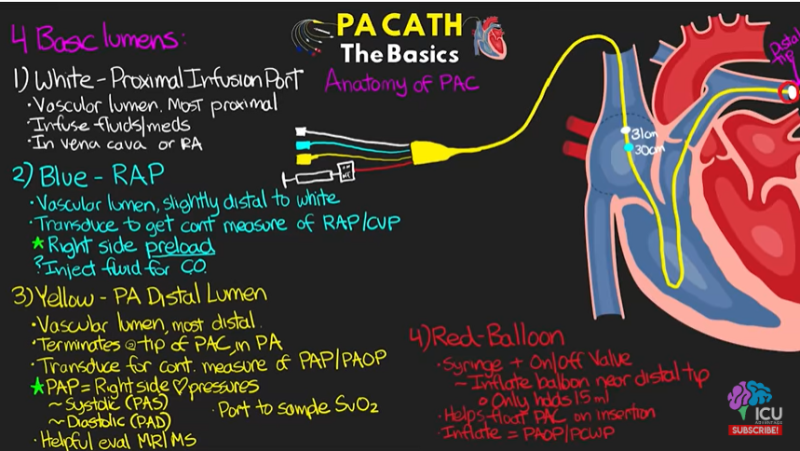 PA CATH
The Basics
Anatomy of PAC
4 Basic lumens:
1) White - Proximal Infusion Port
• Vascular lumen. Most proximal
• Infuse fluids/meds
• In vena cava or RA
2) Blue - RAP
• Vascular lumen, slightly distal to white
• Transduce to get cont measure of RAP/CVP
★ Right side preload
? Inject fluid for CO.
3) Yellow - PA Distal Lumen
• Vascular lumen, most distal.
• Terminates @ tip of PAC, in PA
• Transduce for cont. measure of PAP/PAOP
★ PAP = Right side ♡ pressures
~ Systolic (PAS)
~ Diastolic (PAD)
• Port to sample SvO2
• Helpful eval MR/MS
4) Red - Balloon
• Syringe + On/Off Valve
~ Inflate balloon near distal tip
o Only holds 1.5 ml
• Helps float PAC on insertion
• Inflate = PAOP/PCWP
31cm
30cm
Distal
tip
ICU
SUBSCRIBE!